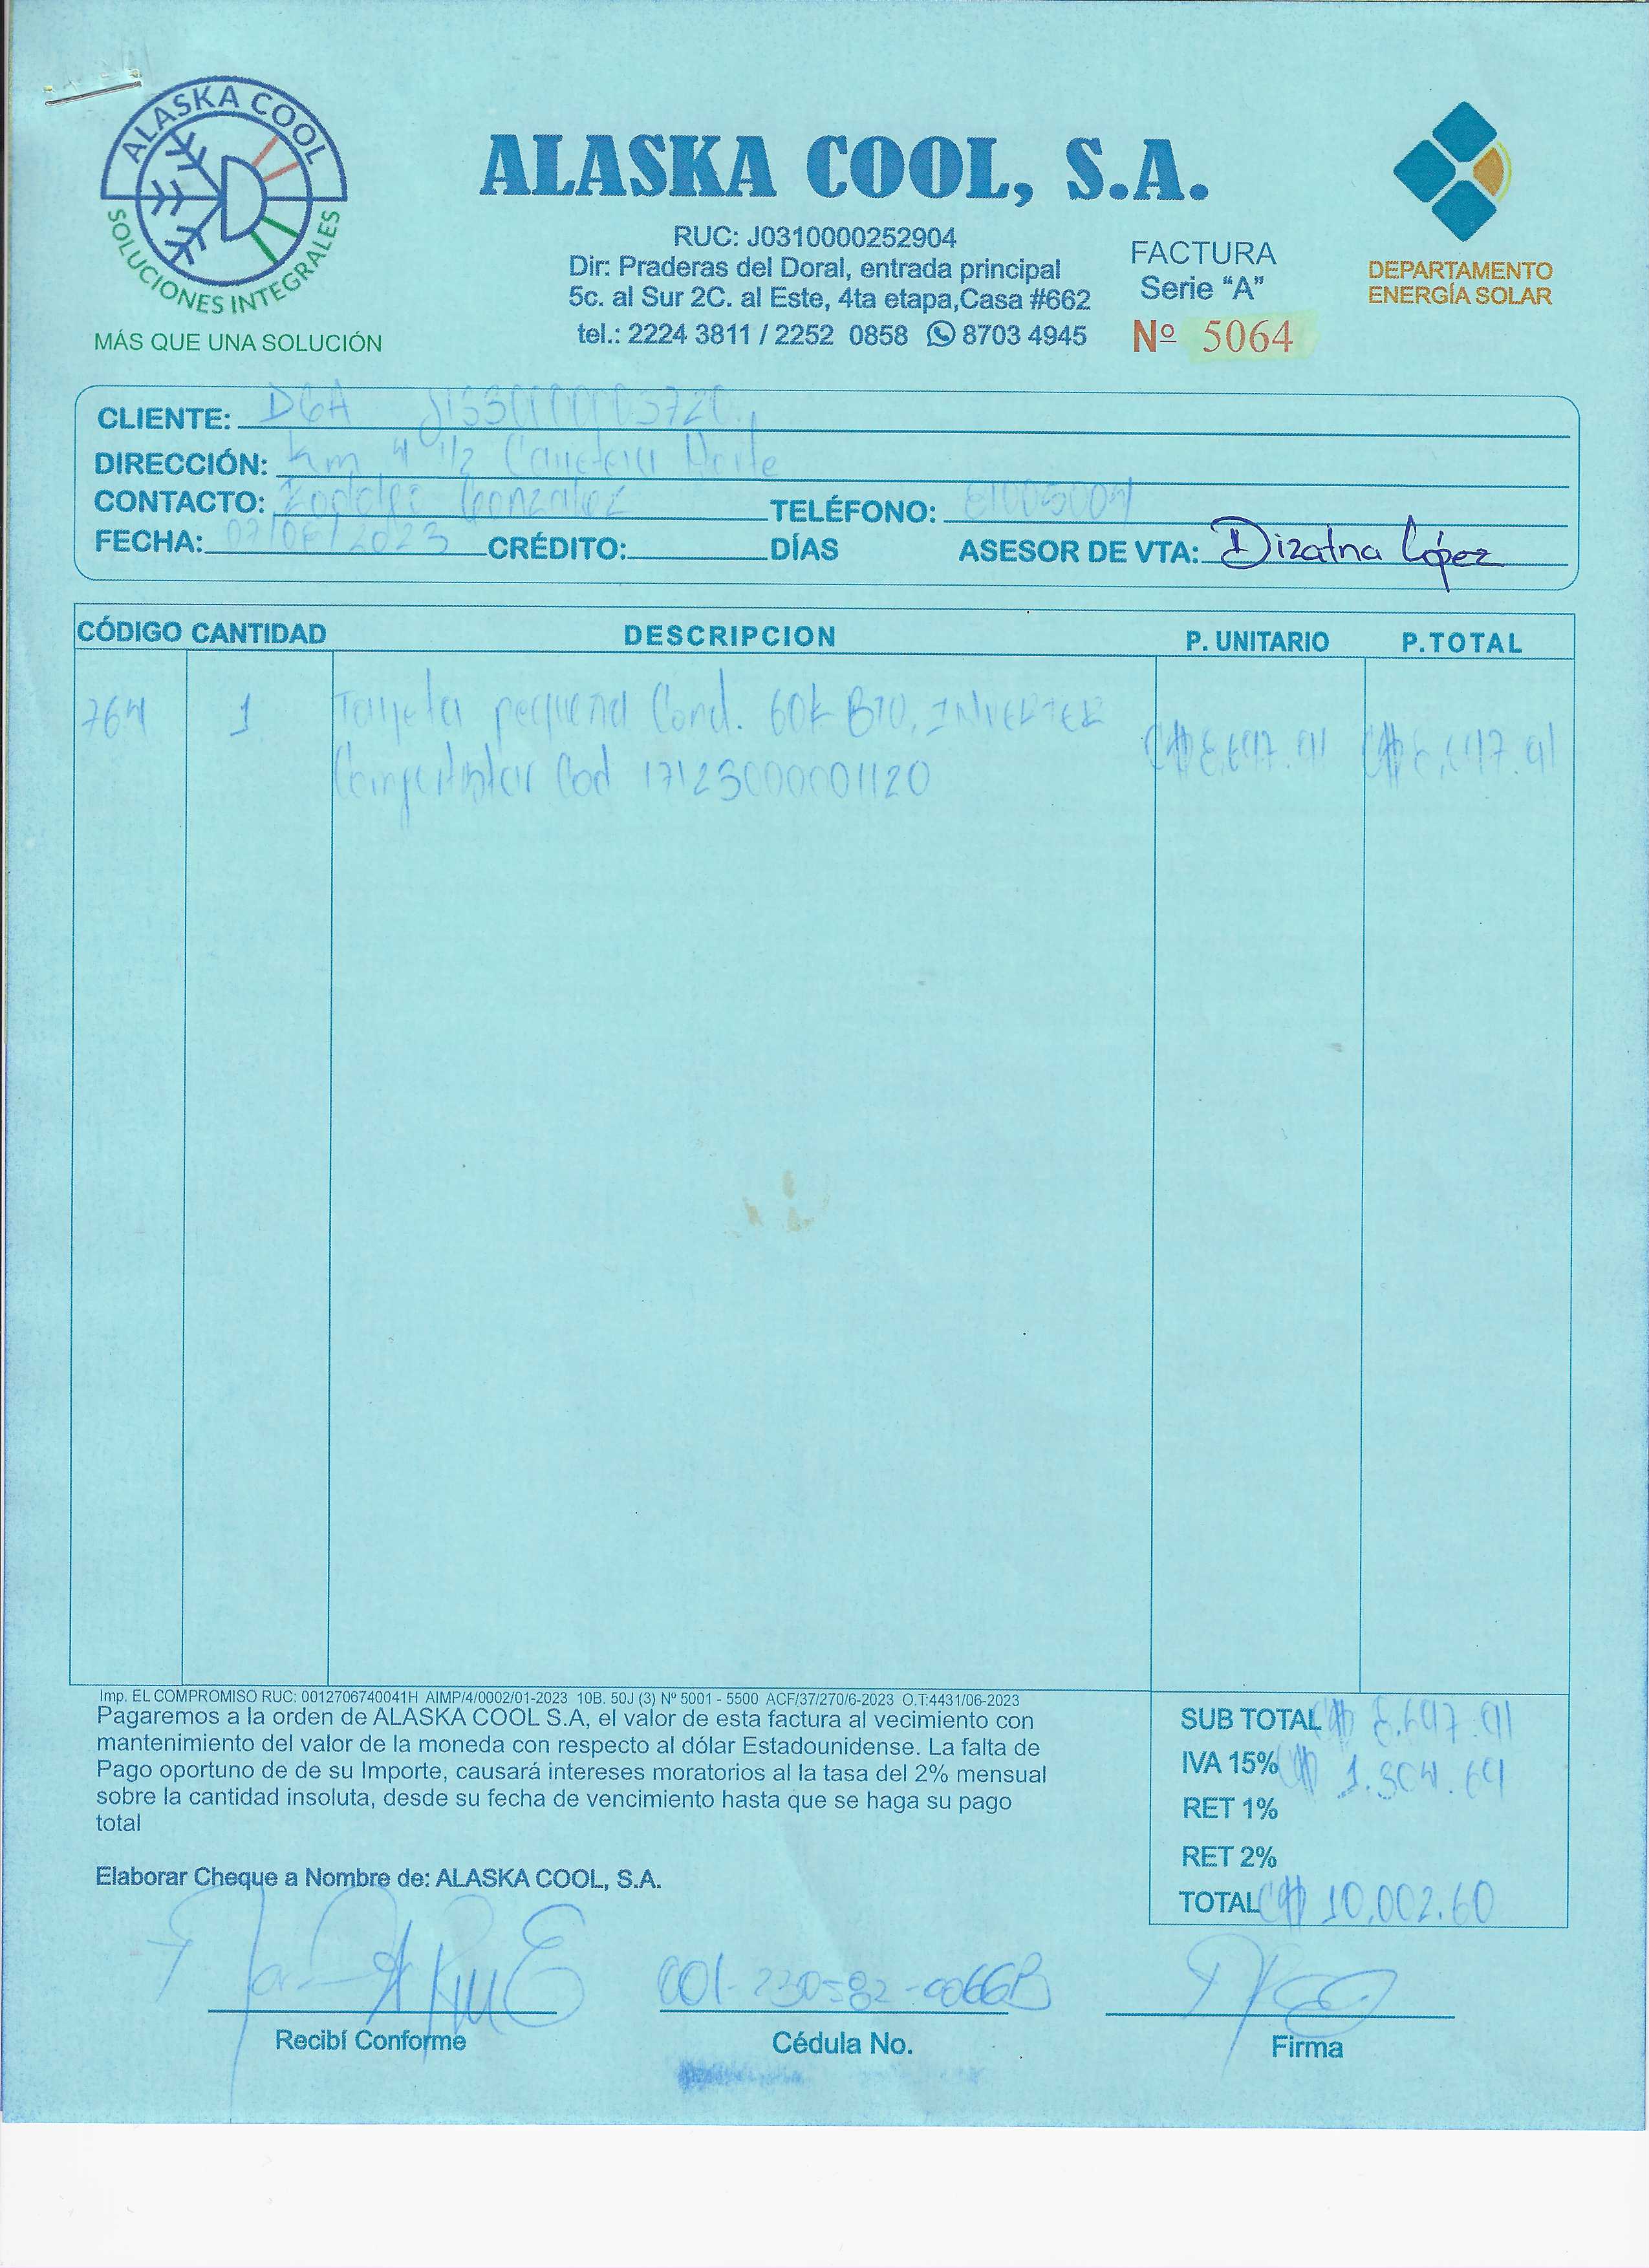 ALASKA COOL
SOLUCIONES INTEGRALES
MÁS QUE UNA SOLUCIÓN
ALASKA COOL, S.A.
RUC: J0310000252904
Dir: Praderas del Doral, entrada principal
5c. al Sur 2C. al Este, 4ta etapa,Casa #662
tel.: 2224 3811 / 2252 0858 8703 4945
FACTURA
Serie “A”
Nº 5064
DEPARTAMENTO
ENERGÍA SOLAR
CLIENTE: DGA
DIRECCIÓN: Km 4 1/2 Carretera Norte
CONTACTO: Gonzalez TELÉFONO:
FECHA: 07/06/2023 CRÉDITO: DÍAS ASESOR DE VTA: López
CÓDIGO CANTIDAD DESCRIPCION P. UNITARIO P.TOTAL
764 1 Tarjeta pequeña Cond. 60k BTU, INVERTER C$ 8,697.91 C$ 8,697.91
Cod 17123000001120
Imp. EL COMPROMISO RUC: 0012706740041H AIMP/4/0002/01-2023 10B. 50J (3) Nº 5001 - 5500 ACF/37/270/6-2023 O.T:4431/06-2023
Pagaremos a la orden de ALASKA COOL S.A, el valor de esta factura al vecimiento con
mantenimiento del valor de la moneda con respecto al dólar Estadounidense. La falta de
Pago oportuno de de su Importe, causará intereses moratorios al la tasa del 2% mensual
sobre la cantidad insoluta, desde su fecha de vencimiento hasta que se haga su pago
total
Elaborar Cheque a Nombre de: ALASKA COOL, S.A.
SUB TOTAL C$ 8,697.91
IVA 15% C$ 1.304.69
RET 1%
RET 2%
TOTAL C$ 10,002.60
001-230582-0066B
Recibí Conforme Cédula No. Firma